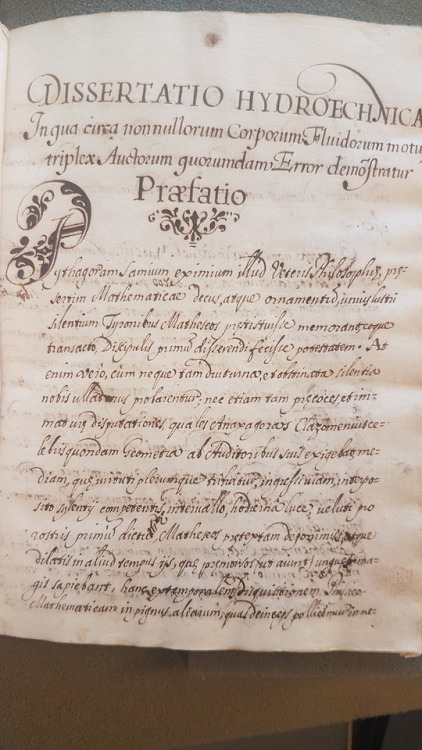 DISSERTATIO HYDROTECHNICA
In qua circa nonnullorum Corporum Fluidorum motu
triplex Auctorum quorumdam Error demõstratur
Præfatio
Pythagoram Samium eximium illud Veteris Philosophiæ, præ-
sertim Mathematicae decus, atque ornamentũ, unius lustri
silentium Tyronibus Matheseos præstituisse memorant, eoque
transacto, Discipulis primũ disserendi fecisse potestatem. At
enim vero, cum neque tam diuturna, et obstinata silentia
nobis ullatenus probarentur, nec etiam tam præcoces, et im-
maturæ disputationes, quales Anaxagoras Clazomenius ce-
leber quondam Geometra ab Auditoribus suis exigebat, me-
diam, quæ virtuti plerumque tribuitur, ingressi viam, interpo-
sito silentij competentis intervallo, hodierna luce, veluti pro
rostris primũ dicturi, Matheseos prætextam deponimus, atque
dilatis in aliud tempus ijs, quæ præmorsos, ut aiunt, ungues ma-
gis sapiebant, hanc extemporalem Disquisitionem Physico-
Mathematicam in pignus aliarum, quas deinceps pollicemur